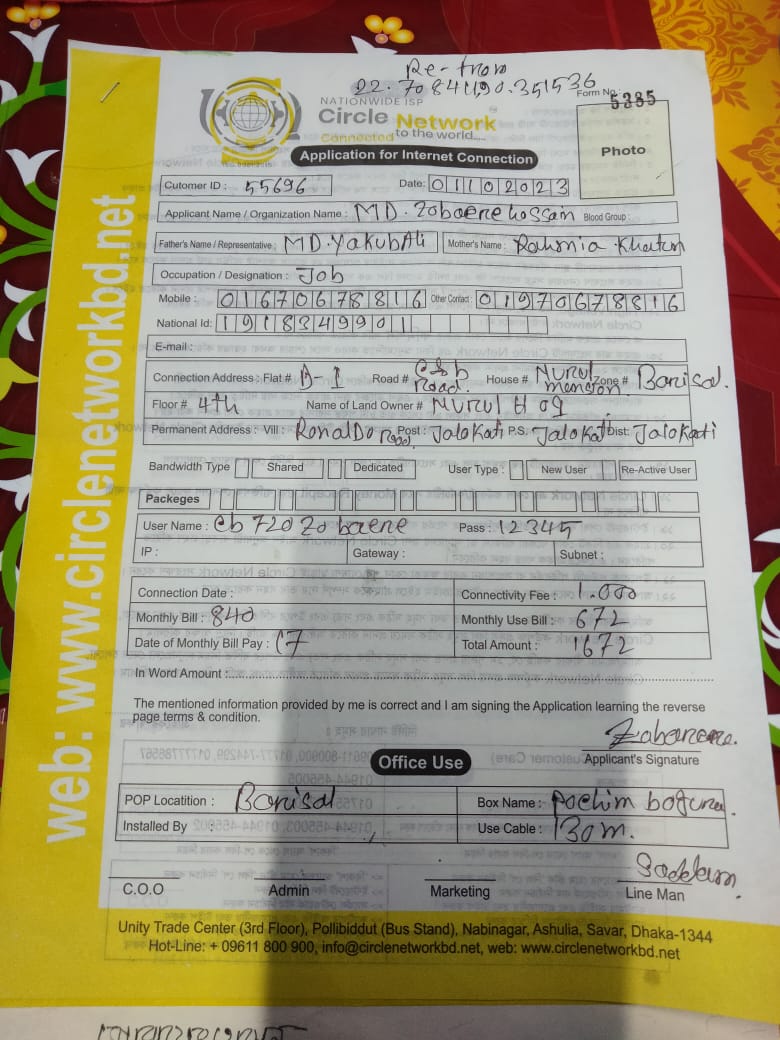 Re-from
22.70841190.351536
Form No.: 5385
NATIONWIDE ISP
Circle Network
Connected to the world....
Photo
Application for Internet Connection
Cutomer ID : 55696 Date: 01102023
Applicant Name / Organization Name : MD. Zobaene Hossain Blood Group :
Father's Name / Representative : MD. Yakub Ali Mother's Name : Rahonia Khatun
Occupation / Designation : Job
Mobile : 01670678816 Other Contact : 01970678816
National Id: 1918349901
E-mail :
Connection Address : Flat # A-1 Road # C&b Road. House # Nurul mansion. Zone # Barisal.
Floor # 4th Name of Land Owner # Nurul Hog
Permanent Address : Vill : Ronaldo Road Post : Jalokati P.S. Jalokati Dist: Jalokati
Bandwidth Type Shared Dedicated User Type : New User Re-Active User
Packeges
User Name : cb720Zobaene Pass : 12345
IP : Gateway : Subnet :
Connection Date : Connectivity Fee : 1.000
Monthly Bill : 840 Monthly Use Bill : 672
Date of Monthly Bill Pay : 17 Total Amount : 1672
In Word Amount :
The mentioned information provided by me is correct and I am signing the Application learning the reverse
page terms & condition.
Applicant's Signature
Office Use
POP Locatition : Barisal Box Name : Pochim bogura.
Installed By : Use Cable : 130m.
Saddam
C.O.O Admin Marketing Line Man
Unity Trade Center (3rd Floor), Pollibiddut (Bus Stand), Nabinagar, Ashulia, Savar, Dhaka-1344
Hot-Line: + 09611 800 900, info@circlenetworkbd.net, web: www.circlenetworkbd.net
web: www.circlenetworkbd.net